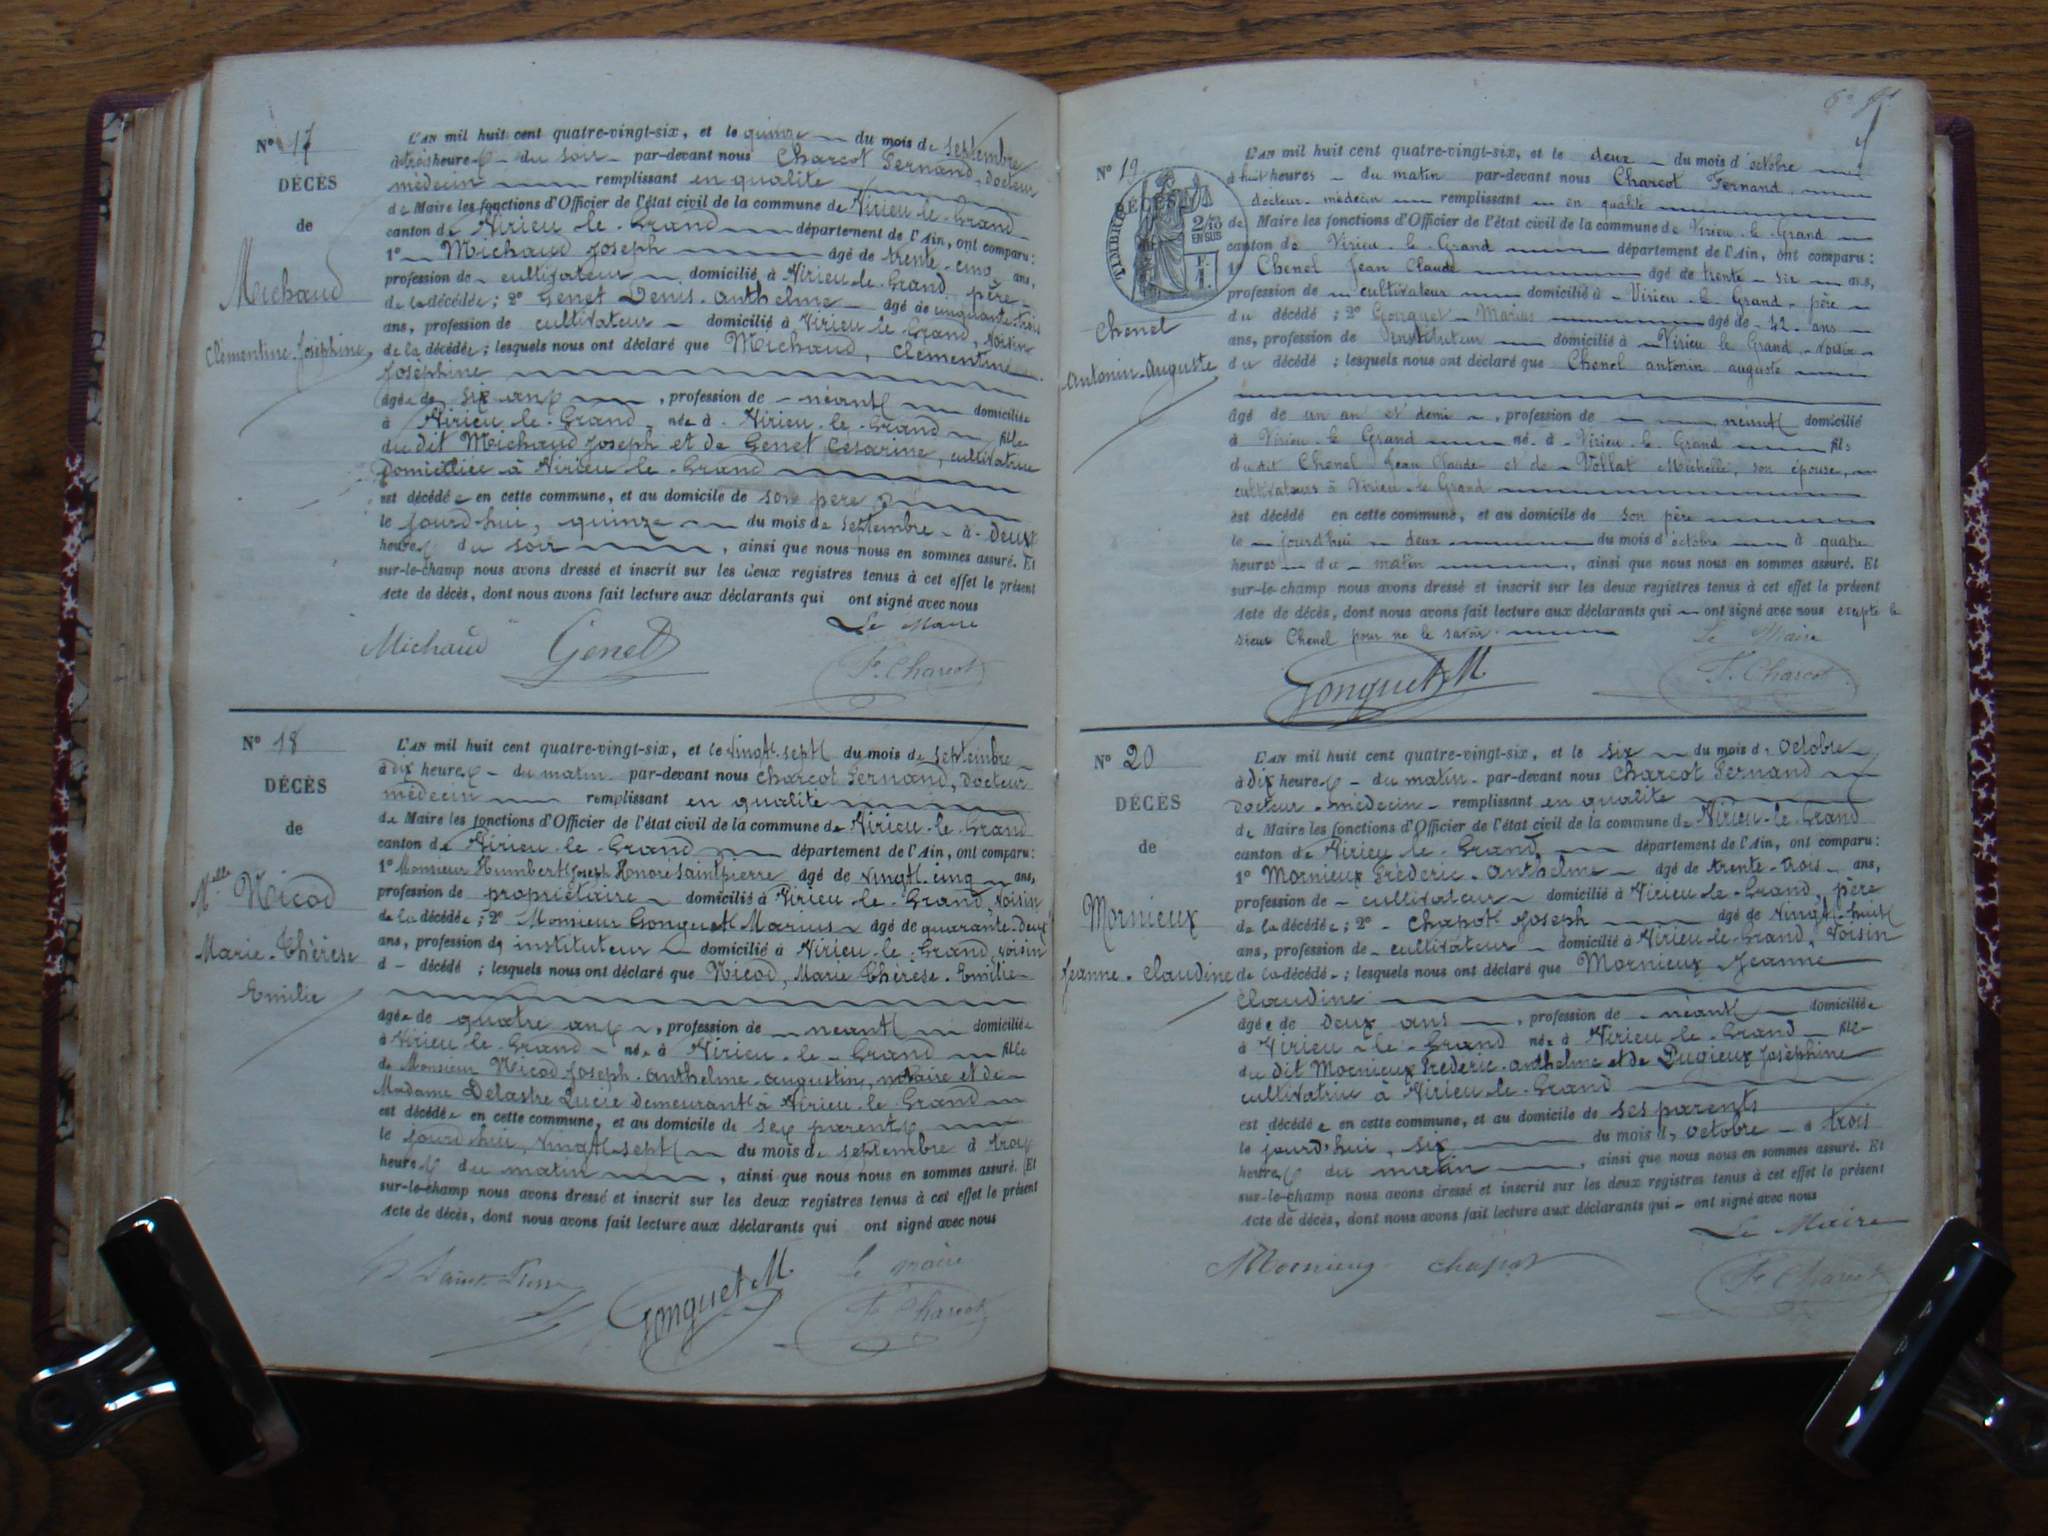 N° 17
DÉCÈS
de
Michaud
Clémentine Joséphine
L'AN mil huit cent quatre-vingt-six, et le quinze du mois de septembre
à trois heures du soir par-devant nous Charcot Fernand, Docteur
médecin remplissant en qualité
de Maire les fonctions d'Officier de l'état civil de la commune de Virieu-le-Grand
canton de Virieu-le-Grand département de l'Ain, ont comparu:
1° Michaud Joseph âgé de trente-cinq ans,
profession de cultivateur domicilié à Virieu-le-Grand, père
de la décédée; 2° Genet Denis-anthelme âgé de cinquante-trois
ans, profession de cultivateur domicilié à Virieu-le-Grand, voisin
de la décédée; lesquels nous ont déclaré que Michaud, Clémentine
Joséphine
âgée de six ans, profession de néant domiciliée
à Virieu-le-Grand, née à Virieu-le-Grand fille
du dit Michaud Joseph et de Genet Césarine, cultivatrice
domiciliée à Virieu-le-Grand
est décédée en cette commune, et au domicile de son père
le jourd'hui, quinze du mois de septembre à Deux
heures du soir, ainsi que nous nous en sommes assuré. Et
sur-le-champ nous avons dressé et inscrit sur les deux registres tenus à cet effet le présent
Acte de décès, dont nous avons fait lecture aux déclarants qui ont signé avec nous
Le Maire
Michaud Genet F. Charcot
N° 18
DÉCÈS
de
Melle Nicod
Marie-Thérèse
Emilie
L'AN mil huit cent quatre-vingt-six, et le vingt-sept du mois de septembre
à dix heures du matin par-devant nous Charcot Fernand, Docteur
médecin remplissant en qualité
de Maire les fonctions d'Officier de l'état civil de la commune de Virieu-le-Grand
canton de Virieu-le-Grand département de l'Ain, ont comparu:
1° Monsieur Humbert Joseph Honoré Saintpierre âgé de vingt-cinq ans,
profession de propriétaire domicilié à Virieu-le-Grand, voisin
de la décédée; 2° Monsieur Gonguet Marius âgé de quarante-Deux
ans, profession de instituteur domicilié à Virieu-le-Grand, voisin
d décédé; lesquels nous ont déclaré que Nicod, Marie Thérèse-Emilie
âgée de quatre ans, profession de néant domiciliée
à Virieu-le-Grand née à Virieu-le-Grand fille
de Monsieur Nicod Joseph-anthelme augustin, notaire et de
Madame Delastre Lucie Demeurant à Virieu-le-Grand
est décédée en cette commune, et au domicile de ses parents
le jourd'hui, vingt-sept du mois de septembre à trois
heures du matin, ainsi que nous nous en sommes assuré. Et
sur-le-champ nous avons dressé et inscrit sur les deux registres tenus à cet effet le présent
Acte de décès, dont nous avons fait lecture aux déclarants qui ont signé avec nous
Saint-Pierre Gonguet M. Le Maire
F. Charcot
N° 19
DÉCÈS
TIMBRE
2/10
EN SUS
F.
1
Chenel
Antonin-Auguste
L'AN mil huit cent quatre-vingt-six, et le deux du mois d'octobre
à huit heures du matin par-devant nous Charcot Fernand
docteur-médecin remplissant en qualité
de Maire les fonctions d'Officier de l'état civil de la commune de Virieu-le-Grand
canton de Virieu-le-Grand département de l'Ain, ont comparu:
1° Chenel Jean Claude âgé de trente-six ans,
profession de cultivateur domicilié à Virieu-le-Grand, père
du décédé; 2° Gonguet Marius âgé de 42 ans
ans, profession de Instituteur domicilié à Virieu le Grand, voisin
du décédé; lesquels nous ont déclaré que Chenel antonin auguste
âgé de un an et demi, profession de néant domicilié
à Virieu-le-Grand né à Virieu-le-Grand fils
du dit Chenel Jean Claude et de Vollat Michelle, son épouse,
cultivateurs à Virieu-le-Grand
est décédé en cette commune, et au domicile de son père
le jourd'hui deux du mois d'octobre à quatre
heures du matin, ainsi que nous nous en sommes assuré. Et
sur-le-champ nous avons dressé et inscrit sur les deux registres tenus à cet effet le présent
Acte de décès, dont nous avons fait lecture aux déclarants qui ont signé avec nous excepté le
sieur Chenel pour ne le savoir. Le Maire
Gonguet M. F. Charcot
N° 20
DÉCÈS
de
Mornieux
Jeanne-Claudine
L'AN mil huit cent quatre-vingt-six, et le six du mois d'octobre
à dix heures du matin par-devant nous Charcot Fernand
Docteur-médecin remplissant en qualité
de Maire les fonctions d'Officier de l'état civil de la commune de Virieu-le-Grand
canton de Virieu-le-Grand département de l'Ain, ont comparu:
1° Mornieux Frédéric-anthelme âgé de trente-trois ans,
profession de cultivateur domicilié à Virieu-le-Grand, père
de la décédée; 2° Chapot Joseph âgé de vingt-huit
ans, profession de cultivateur domicilié à Virieu-le-Grand, voisin
de la décédée; lesquels nous ont déclaré que Mornieux Jeanne
Claudine
âgée de Deux ans, profession de néant domiciliée
à Virieu-le-Grand née à Virieu-le-Grand fille
du dit Mornieux Frédéric-anthelme et de Dugieux Joséphine
cultivatrice à Virieu-le-Grand
est décédée en cette commune, et au domicile de ses parents
le jourd'hui, six du mois d'octobre à trois
heures du matin, ainsi que nous nous en sommes assuré. Et
sur-le-champ nous avons dressé et inscrit sur les deux registres tenus à cet effet le présent
Acte de décès, dont nous avons fait lecture aux déclarants qui ont signé avec nous
Le Maire
Mornieux Chapot F. Charcot